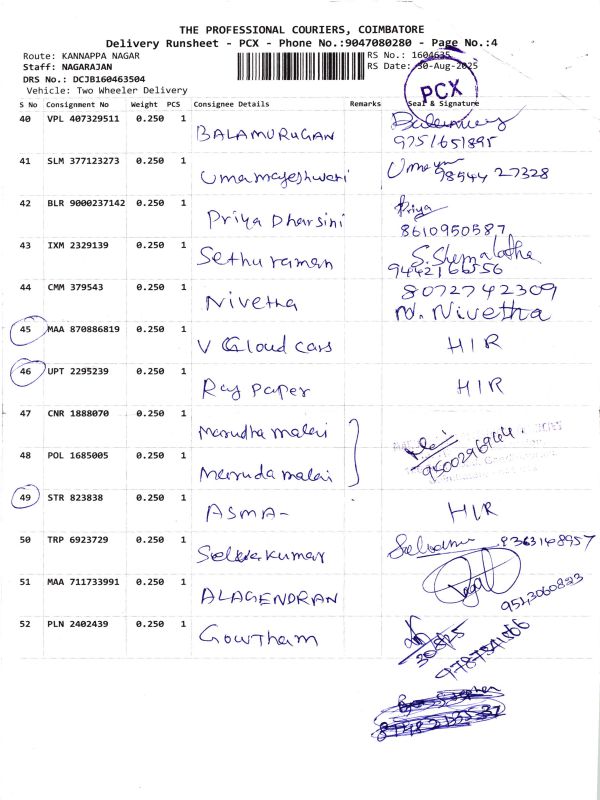 THE PROFESSIONAL COURIERS, COIMBATORE
Delivery Runsheet - PCX - Phone No.:9047080280 - Page No.:4
Route: KANNAPPA NAGAR RS No.: 1604635
Staff: NAGARAJAN RS Date: 30-Aug-2025
DRS No.: DCJB160463504
Vehicle: Two Wheeler Delivery
PCX
S No Consignment No Weight PCS Consignee Details Remarks Seal & Signature
40 VPL 407329511 0.250 1 BALAMURUGAN
9751651895
41 SLM 377123273 0.250 1 Umamageshwari Uma 98544 27328
42 BLR 9000237142 0.250 1 Priya Dharsini Priya
8610950587
43 IXM 2329139 0.250 1 Sethuraman S. Shemalatha
9442166556
44 CMM 379543 0.250 1 Nivetha 8072742309
N. Nivetha
45 MAA 870886819 0.250 1 V Cloud cars HIR
46 UPT 2295239 0.250 1 Raj paper HIR
47 CNR 1888070 0.250 1 Marudha malai
9500296944
48 POL 1685005 0.250 1 Maruda malai
49 STR 823838 0.250 1 ASMA- HIR
50 TRP 6923729 0.250 1 Selvakumar 9363148957
51 MAA 711733991 0.250 1 ALAGENDRAN
9543060823
52 PLN 2402439 0.250 1 Gowtham
30/8/25
9787541566